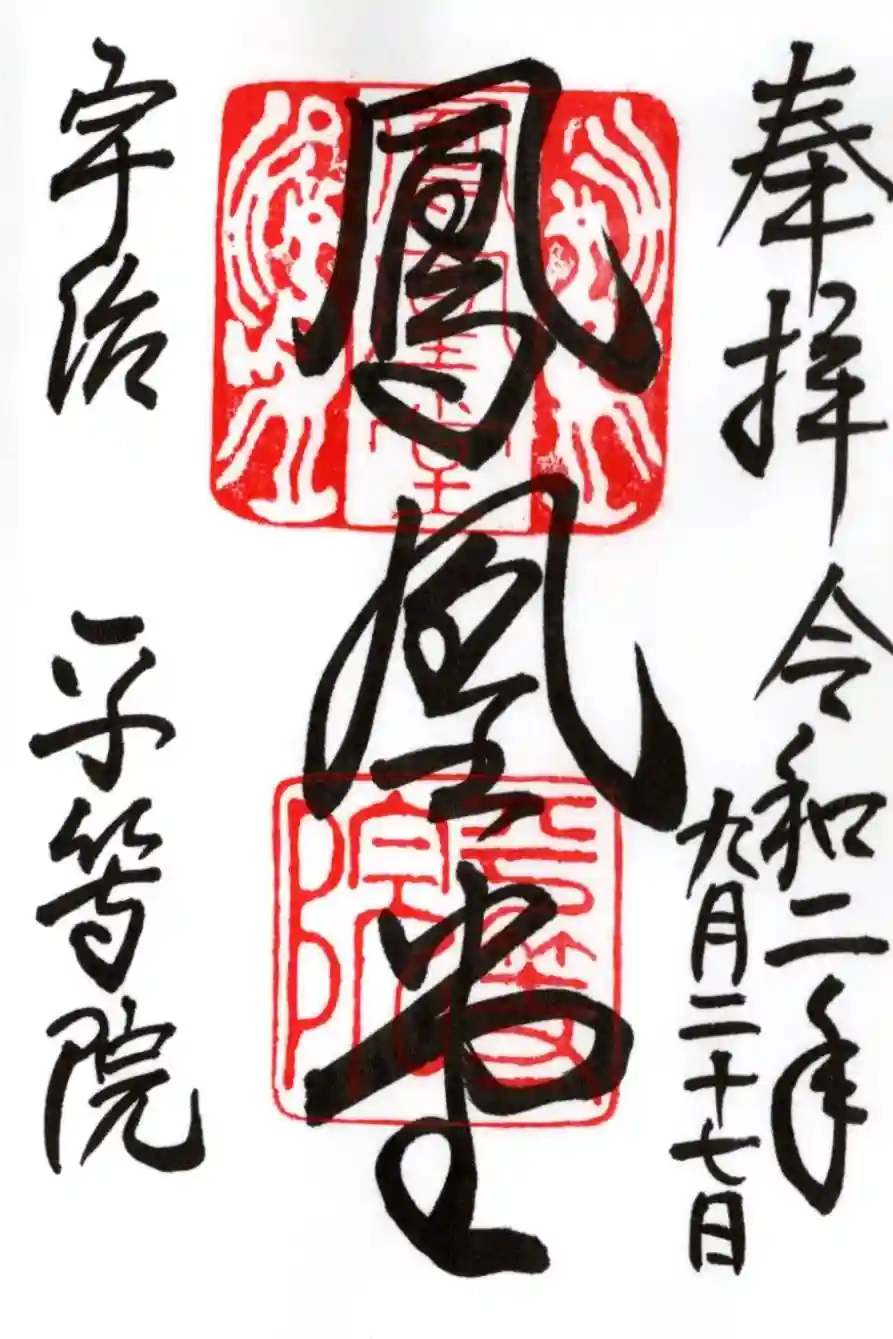 奉拝 令和二年
九月二十七日
鳳凰堂
鳳凰堂
平等院
宇治 平等院